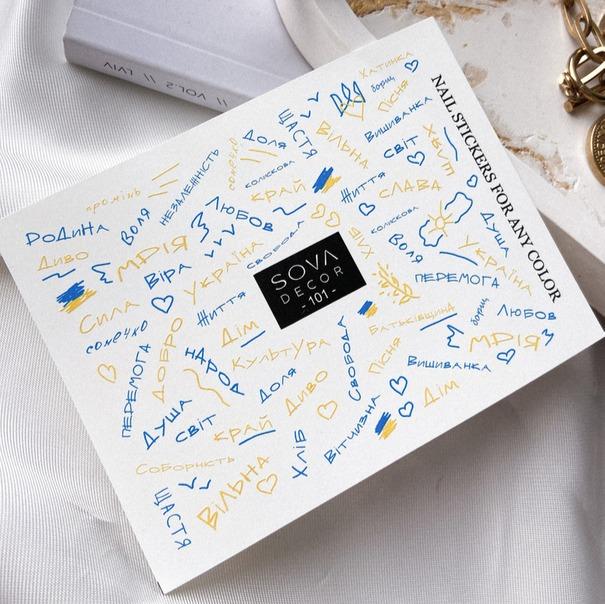 VOL.2 // LVIV
NAIL STICKERS FOR ANY COLOR
ХАТИНКА
борщ
ПІСНЯ
ЩАСТЯ
ВІЛЬНА
ВИШИВАНКА
СВІТ
ДОЛЯ
СОНЕЧКО
КОЛИСКОВА
НЕЗАЛЕЖНІСТЬ
промінь
КРАЙ
ЖИТТЯ
СЛАВА
РОДИНА
ВОЛЯ
ЛЮБОВ
КОЛИСКОВА
ДИВО
МРІЯ
ВІРА
УКРАЇНА
СВОБОДА
ХЛІБ
ВОЛЯ
УКРАЇНА
ДУША
ПЕРЕМОГА
SOVA
DECOR
- 101 -
СИЛА
СОНЕЧКО
ЖИТТЯ
ДІМ
БАТЬКІВЩИНА
борщ
ЛЮБОВ
МРІЯ
ПЕРЕМОГА
ДОБРО
НАРОД
КУЛЬТУРА
СВОБОДА
ПІСНЯ
ВИШИВАНКА
ДУША
СВІТ
ДОЛЯ
ДИВО
ДІМ
КРАЙ
ХЛІБ
ВІТЧИЗНА
СОБОРНІСТЬ
ВІЛЬНА
ЩАСТЯ